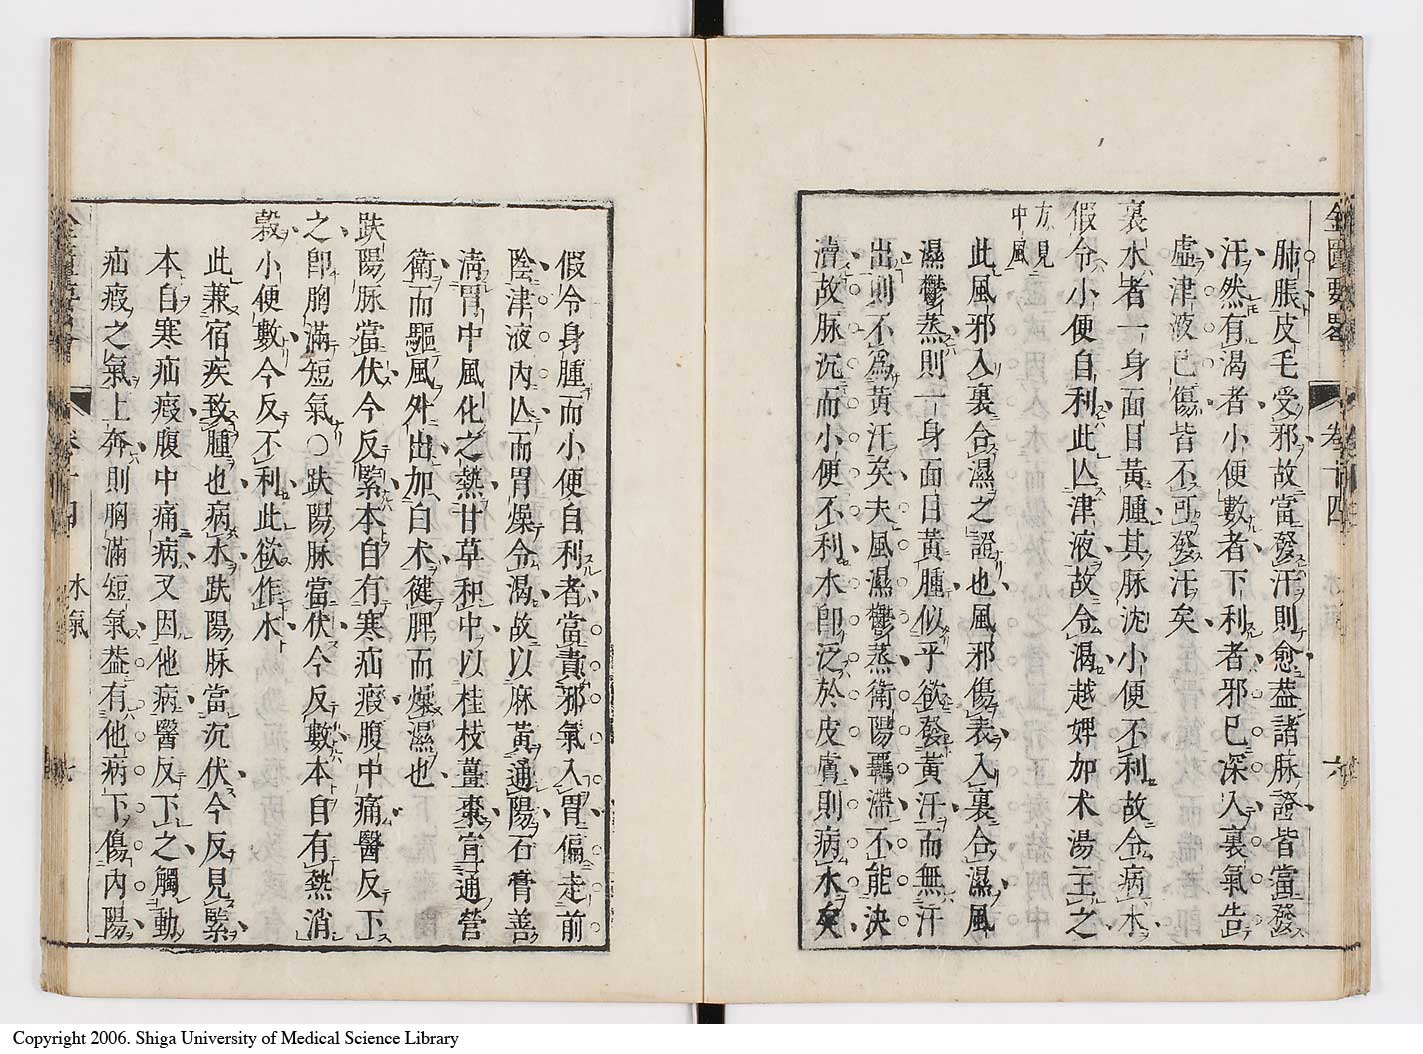 金匱要畧 卷十四 六
肺脹皮毛受邪故當發汗則愈葢諸脉證皆當發
汗然有渴者小便數者下利者邪已深入裏氣告
虛津液已傷皆不可發汗矣
裏水者一身面目黃腫其脉沈小便不利故令病水
假令小便自利此亾津液故令渴越婢加朮湯主之
方見
中風
此風邪入裏合濕之證也風邪傷表入裏合濕風
濕鬱蒸則一身面目黃腫似乎欲發黃汗而無汗
出則不為黃汗矣夫風濕鬱蒸衛陽羈滯不能決
瀆故脉沉而小便不利水卽泛於皮膚則病水矣
假令身腫而小便自利者當責邪氣入胃偏走前
陰津液內亾而胃燥令渴故以麻黃通陽石膏善
淸胃中風化之熱甘草和中以桂枝薑棗宣通營
衛而驅風外出加白朮健脾而燥濕也
趺陽脉當伏今反緊本自有寒疝瘕腹中痛醫反下
之卽胸滿短氣○趺陽脉當伏今反數本自有熱消
穀小便數今反不利此欲作水
此兼宿疾致腫也病水趺陽脉當沉伏今反見緊
本自寒疝瘕腹中痛病又因他病醫反下之觸動
疝瘕之氣上奔則胸滿短氣葢有他病下傷內陽
卷十四 水氣 七
Copyright 2006. Shiga University of Medical Science Library